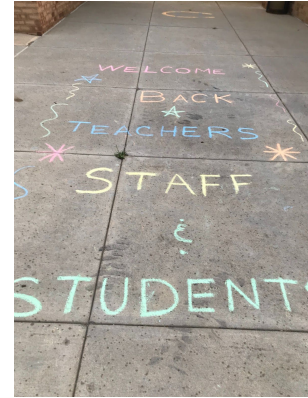 WELCOME
BACK
TEACHERS
STAFF
&
STUDENTS